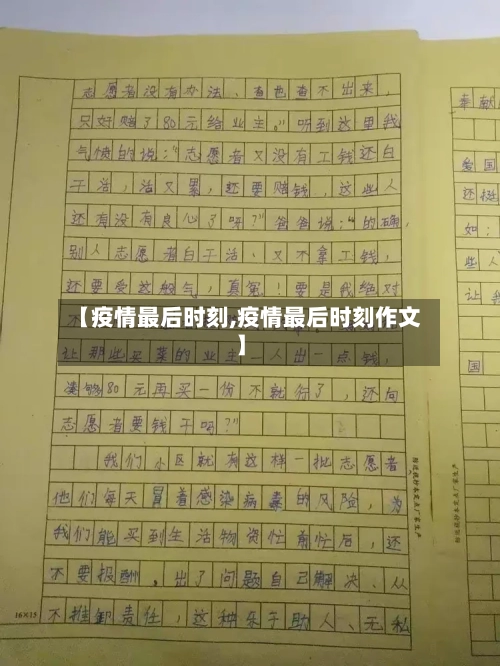 志愿者没有办法、查也查不出来，
只好赔了80元给业主。"听到这里我
气愤的说："志愿者又没有工钱还白
干活，活又累，还要赔钱，这些人
还有没有良心了呀？"爸爸说："的确，
别人志愿者白干活、又不拿工钱，
还要受这般气，真冤！要是我绝对
【疫情最后时刻,疫情最后时刻作文
】
让那些买菜的业主一人出一点钱，
凑够80元再买一份不就行了，还向
志愿者要钱干吗？"
我们小区就有这样一批志愿者
他们每天冒着感染病毒的风险，为
我们能买到生活物资忙前忙后，还
不要报酬。出了问题自己解决、从
不推卸责任，这种乐于助人、无私
16×15
奉献
爱国
还挺
如：
些人
让我
国